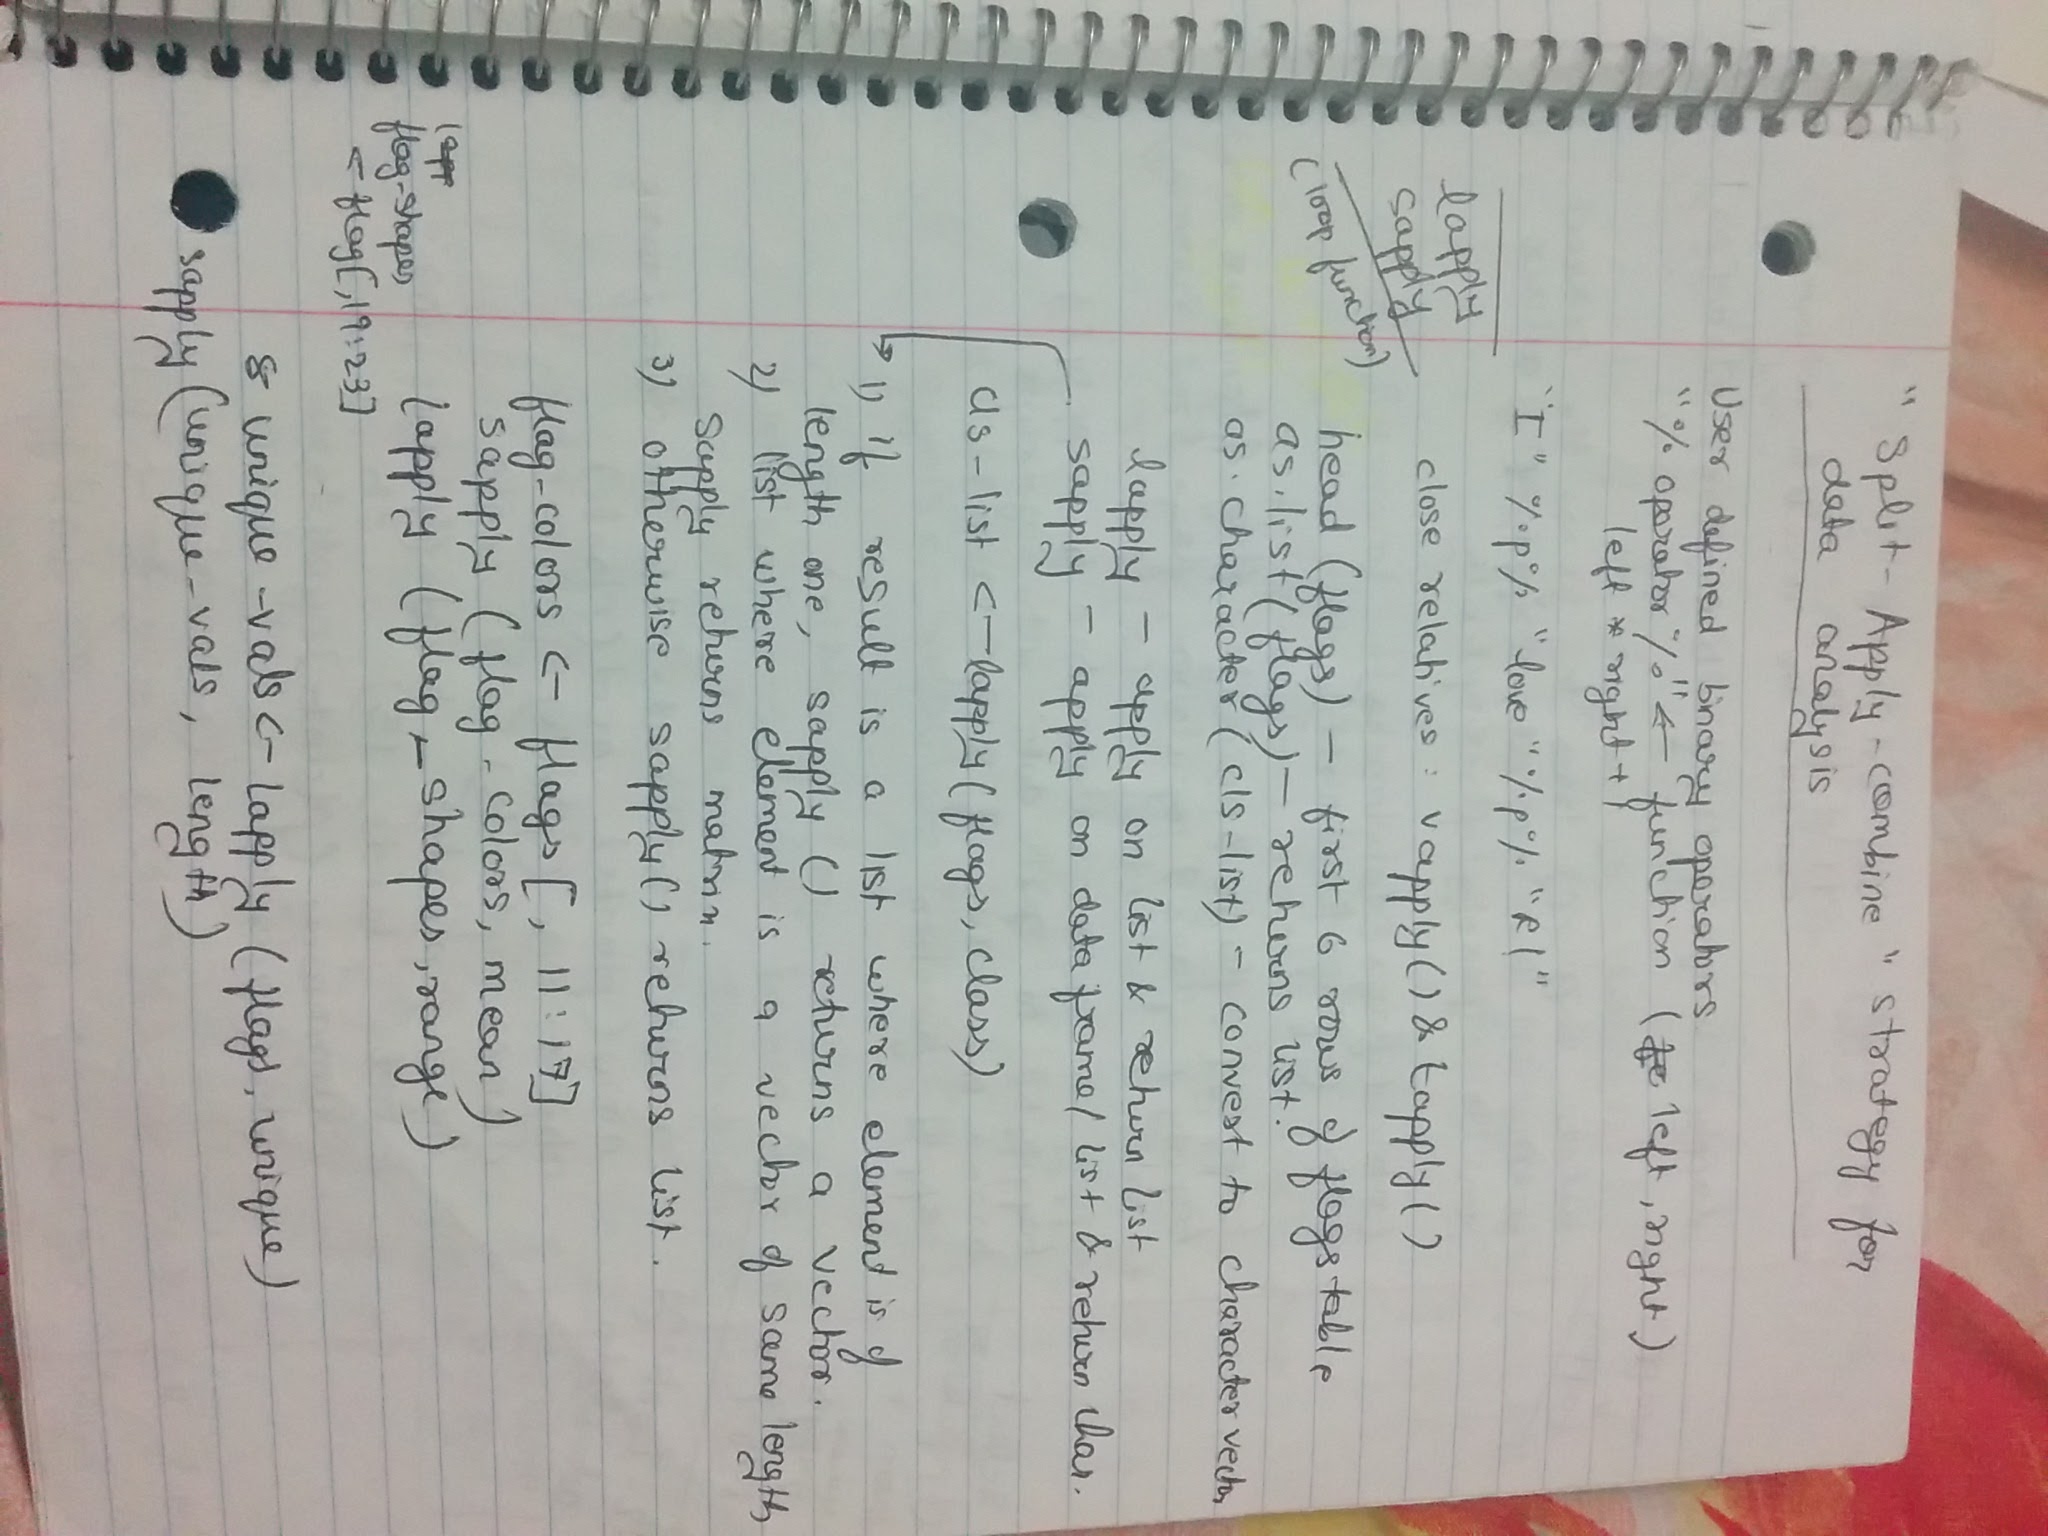 "Split-Apply-combine" strategy for
data analysis
User defined binary operators
"% oparator %" <- function (left, right)
left * right + 1
"I" %p% "love" %p% "R!"
lapply
sapply
(loop function)
close relatives : vapply() & tapply()
head (flags) - first 6 rows of flags table
as.list (flags) - returns list.
as.character (cls-list) - convert to character vector
lapply - apply on list & return list
sapply - apply on data frame/list & return char.
cls-list <- lapply (flags, class)
1) if result is a list where element is of
length one, sapply () returns a vector.
2) list where element is a vector of same length
sapply returns matrix.
3) otherwise sapply() returns list.
flag-colors <- flags[, 11:17]
sapply (flag-colors, mean)
lapp
flag-shapes
<- flag[,19:23]
lapply (flag-shapes, range)
unique-vals <- lapply (flags, unique)
sapply (unique-vals, length)